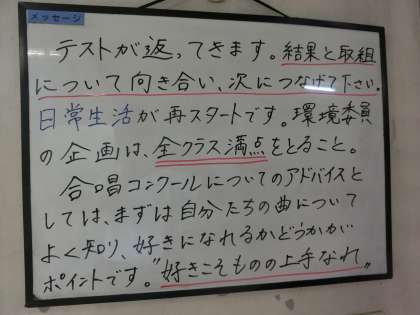 メッセージ
テストが返ってきます。結果と取組
について向き合い、次につなげて下さい。
日常生活が再スタートです。環境委員
の企画は、全クラス満点をとること。
合唱コンクールについてのアドバイスと
しては、まずは自分たちの曲について
よく知り、好きになれるかどうかが
ポイントです。〝好きこそものの上手なれ〟